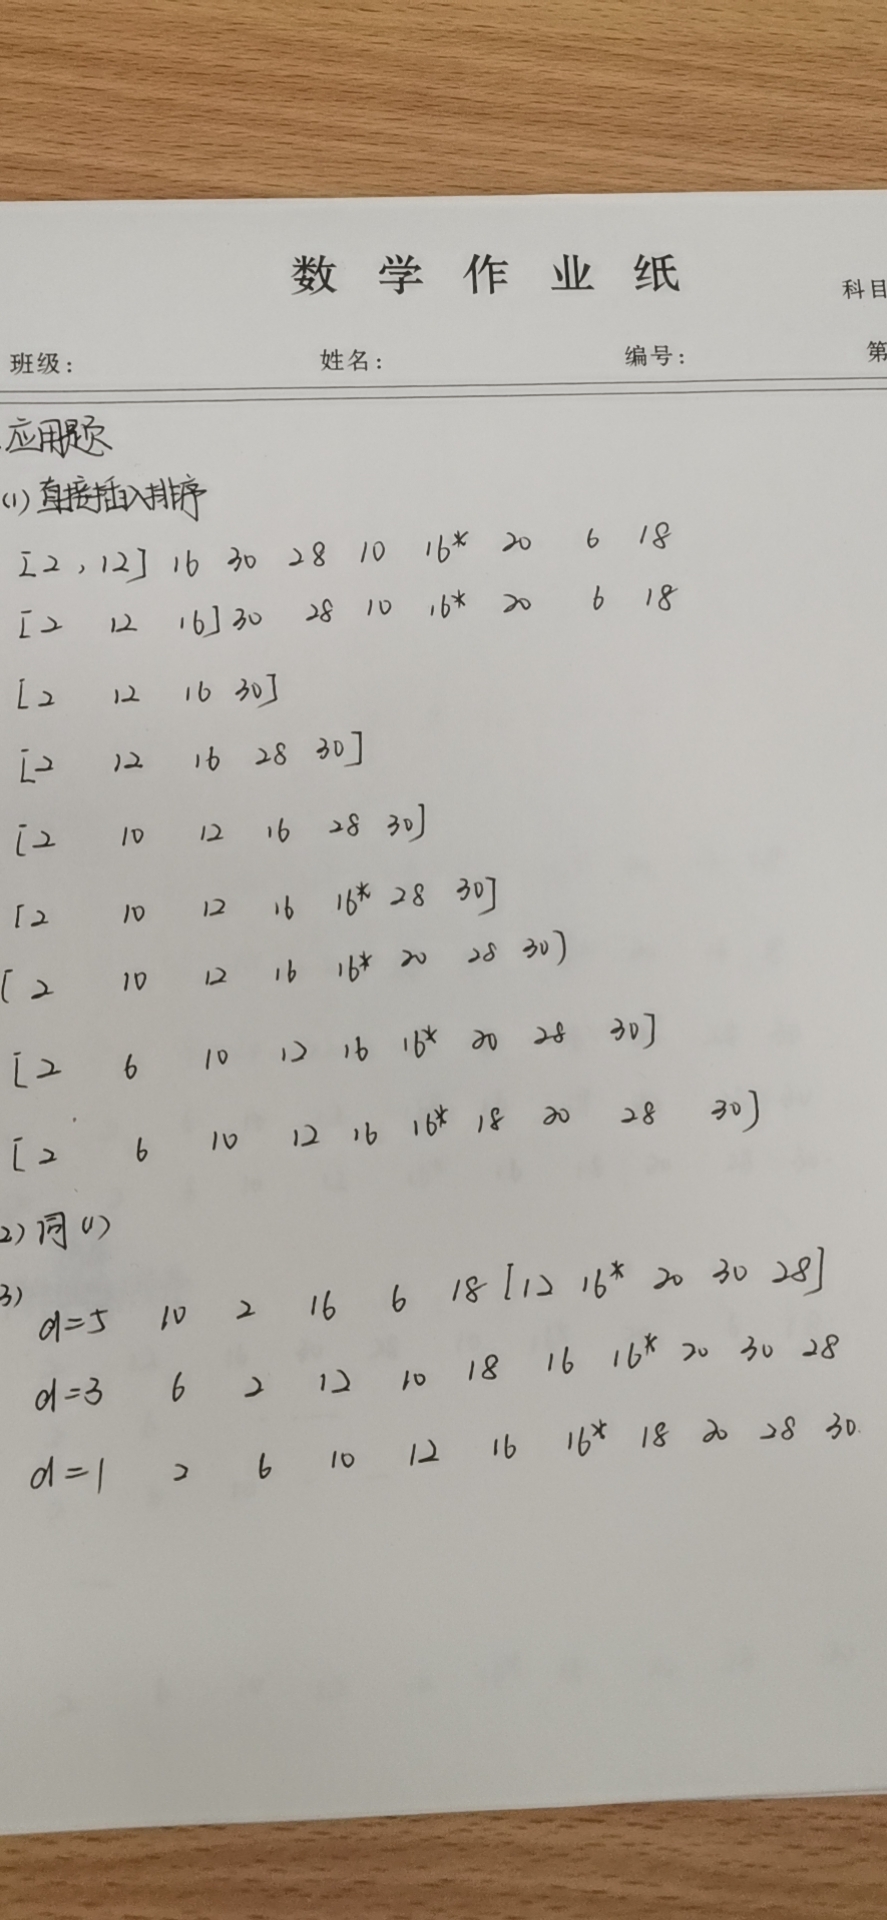 数学作业纸
科目
班级: 姓名: 编号: 第
应用题
(1) 直接插入排序
[2, 12] 16 30 28 10 16* 20 6 18
[2 12 16] 30 28 10 16* 20 6 18
[2 12 16 30]
[2 12 16 28 30]
[2 10 12 16 28 30]
[2 10 12 16 16* 28 30]
[2 10 12 16 16* 20 28 30]
[2 6 10 12 16 16* 20 28 30]
[2 6 10 12 16 16* 18 20 28 30]
2) 同(1)
3)
d=5 10 2 16 6 18 [12 16* 20 30 28]
d=3 6 2 12 10 18 16 16* 20 30 28
d=1 2 6 10 12 16 16* 18 20 28 30